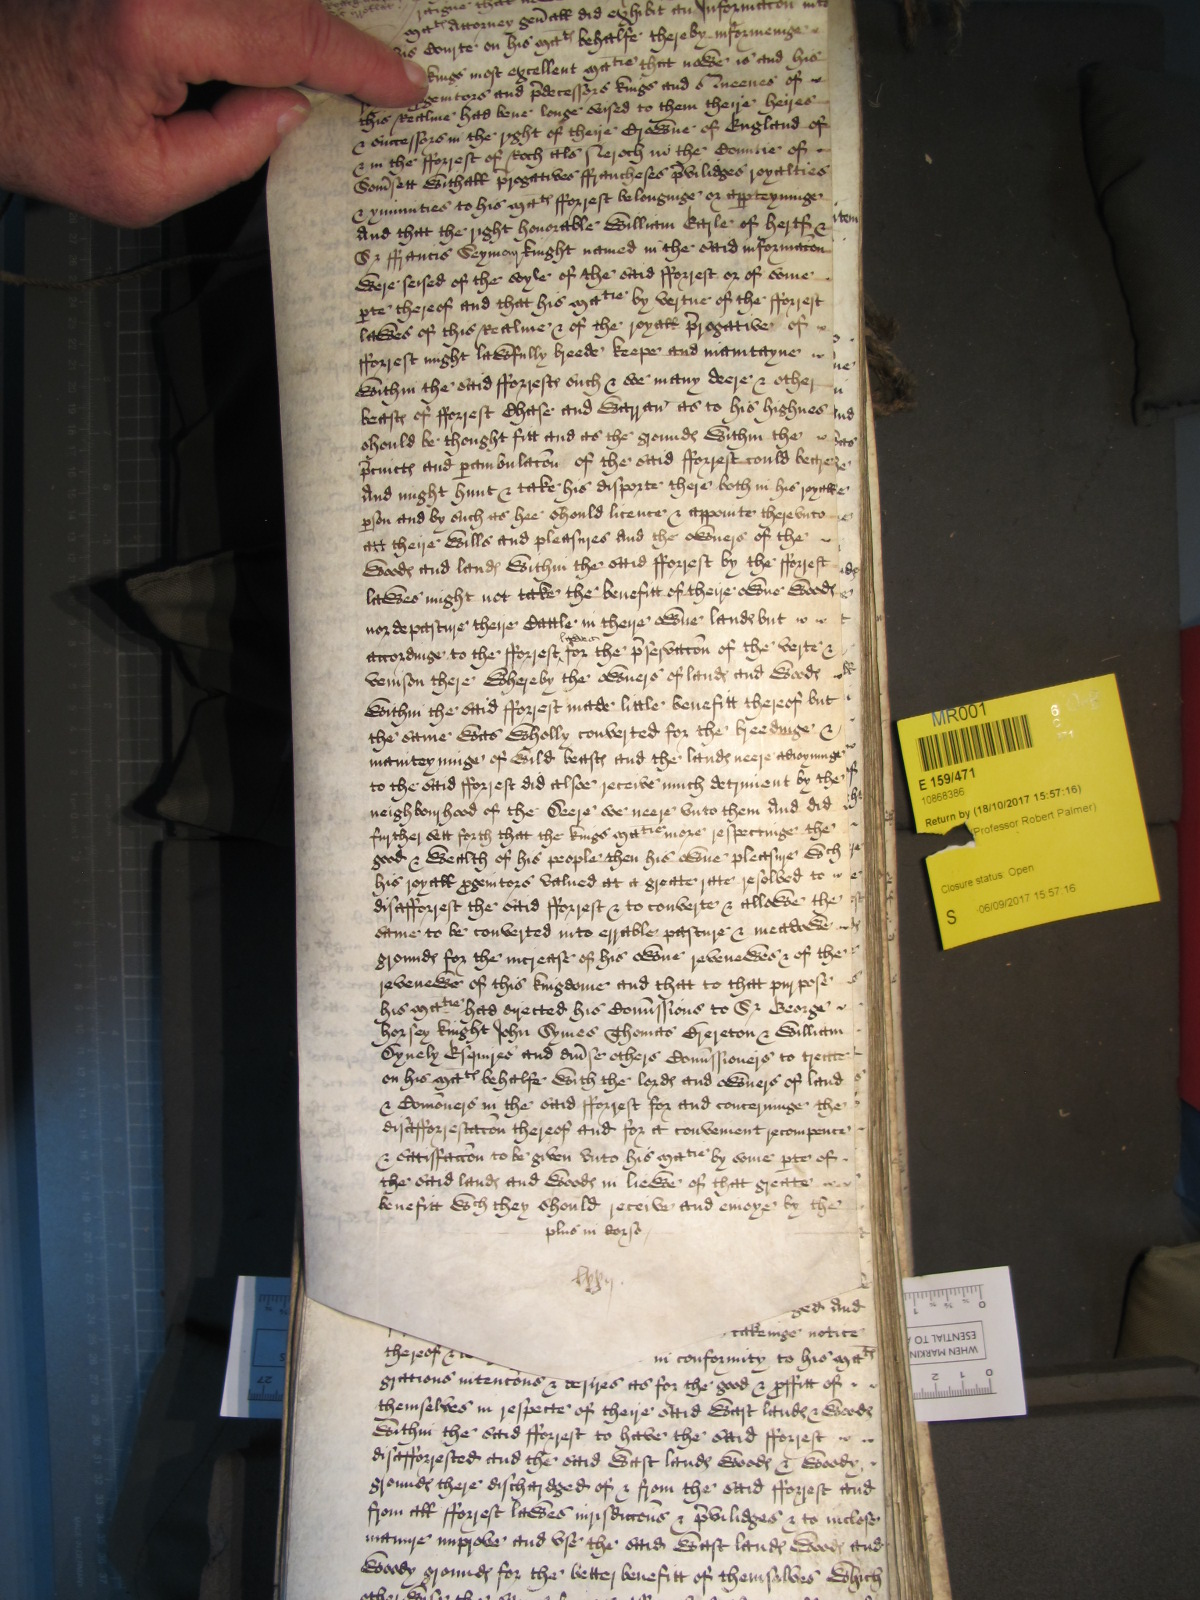 Ma:tes Attorney gen̄all did exhibit an Informacōn into
his Courte on his ma:tes behalfe thereby informeinge
kings most excellent ma:tie that nowe is and his
genitors and p̄decessors kings and Queenes of
this Realme had bene longe seised to them theire heires
& successors in the right of theire Crowne of England of
& in the fforrest of Roch als Neroch in the Countie of
Som̄sett withall p̄rogatives ffrancheses p̄viledges royalties
& yminities to his ma:tes fforrest belonginge or appteyninge
And that the right honorable William Earle of hertf &
Sr ffrancis Seymor knight named in the said informacōn
were seised of the soyle of the said fforrest or of some
pte thereof and that his ma:tie by vertue of the fforrest
lawes of this Realme & of the royall p̄rogative of
fforrest might lawfully breede keepe and maintayne
within the said fforreste such & soe many deere & other
beaste of fforrest Chase and Warran as to his highnes
should be thought fitt and as the grounde within the
p̄cincte and pambulacōn of the said fforrest could beare
And might hunt & take his disporte there both in his royall
pson and by such as hee should licence & appointe therevnto
att theire wills and pleasures and the owners of the
woode and lande within the said fforrest by the fforrest
lawes might not take the benefitt of theire owne woode
nor depasture theire Cattle in theire owne lande but
accordinge to the fforrest lawes for the p̄servacōn of the verte &
venison there Whereby the owners of lande and woode
within the said fforrest made little benefitt thereof but
the same was wholly converted for the breedinge &
mainteyninge of wild beaste and the lande neere adioyninge
to the said fforrest did alsoe receive much detriment by the
neighbourhood of the Deere soe neere vnto them And did
further sett forth that the kings ma:tie more respectinge the
good & wealth of his people then his owne pleasure wch
his royall pgenitors valued at a greate rate resolved to
disafforrest the said fforrest & to converte & allowe the
same to be converted into errable pasture & meadowe
grounde for the increase of his owne revenewes & of the
revenewe of this kingdome and that to that purpose
his ma:tie had directed his Com̄issions to Sr George
horsey knight John Symes Thomas Brereton & William
Esquires and div̄se others Com̄issioners to treate
on his ma:tes behalfe with the lorde and owners of land
& Com̄oners in the said fforrest for and concerninge the
disafforrestacōn thereof and for a convenient recompence
& satisfaccōn to be given vnto his ma:tie by some pte of
the said lande and woode in liewe of that greate
benefitt wch they should receive and enioye by the
plus in dorso
ged And
takeinge notice
thereof in conformity to his ma:tes
gracious intencōns & desires as for the good & pffitt of
themselves in respecte of theire said wast lande & woode
within the said fforrest to have the said fforrest
disafforrested and the said wast lande woode & woody
grounde there dischardged of & from the said fforrest and
from all fforrest lawes iurisdiccōns & p̄viledges & to inclose
manure improve and vse the said wast lande woode and
woody grounde for the better benefitt of themselves which
MR001
E 159/471
10868386
Return by (18/10/2017 15:57:16)
(Professor Robert Palmer)
Closure status: Open
S
06/09/2017 15:57:16
WHEN MARKIN
ESENTIAL TO A
0
1
2
1
0
27